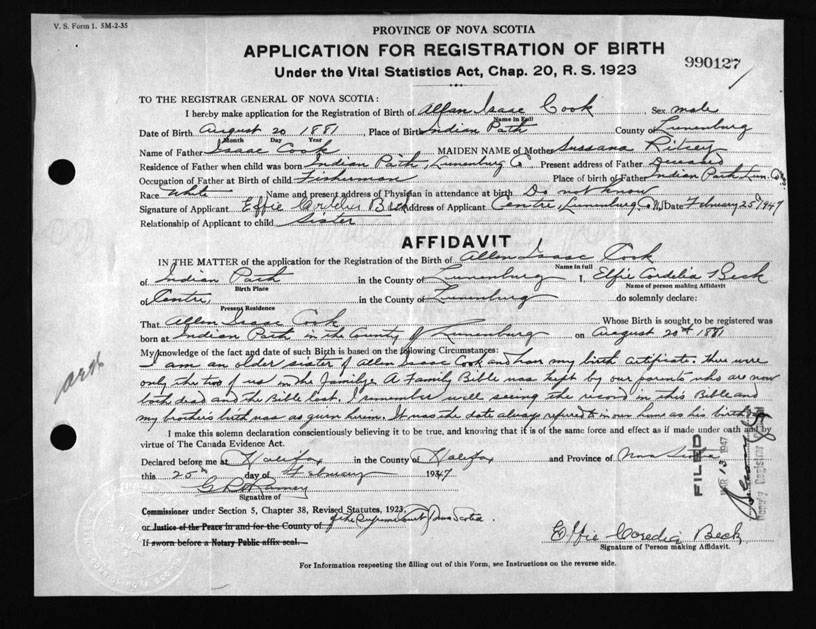 V. S. Form 1. 5M-2-35
PROVINCE OF NOVA SCOTIA
APPLICATION FOR REGISTRATION OF BIRTH
990127
Under the Vital Statistics Act, Chap. 20, R. S. 1923
TO THE REGISTRAR GENERAL OF NOVA SCOTIA:
I hereby make application for the Registration of Birth of Allan Isaac Cook Sex male
Name in Full
Date of Birth August 20 1881, Place of Birth Indian Path County of Lunenburg
Month Day Year
Name of Father Isaac Cook MAIDEN NAME of Mother Sussana Ritcey
Residence of Father when child was born Indian Path, Lunenburg Co Present address of Father Deceased
Occupation of Father at Birth of child Fisherman Place of birth of Father Indian Path Lun. Co
Race White Name and present address of Physician in attendance at birth Do not know
Signature of Applicant Effie Cordelia Beck Address of Applicant Centre, Lunenburg Co NS Date February 25th 1947
Relationship of Applicant to child Sister
AFFIDAVIT
IN THE MATTER of the application for the Registration of the Birth of Allen Isaac Cook
Name in full
of Indian Path in the County of Lunenburg I, Effie Cordelia Beck
Birth Place Name of person making Affidavit
of Centre, in the County of Lunenburg do solemnly declare:
Present Residence
That Allen Isaac Cook Whose Birth is sought to be registered was
born at Indian Path in the County of Lunenburg on August 20th 1881
My knowledge of the fact and date of such Birth is based on the following Circumstances:
I am an older sister of Allen Isaac Cook and have my birth certificate. There were
only the two of us in the family. A Family Bible was kept by our parents who are now
both dead and the Bible lost. I remember well seeing the record in this Bible and
my brother's birth was as given herein. It was the date always referred to in our home as his birthday
I make this solemn declaration conscientiously believing it to be true, and knowing that it is of the same force and effect as if made under oath and by
virtue of The Canada Evidence Act.
Declared before me at Halifax in the County of Halifax and Province of Nova Scotia
this 25th day of February 1947
Signature of
Commissioner under Section 5, Chapter 38, Revised Statutes, 1923,
or Justice of the Peace in and for the County of of the Supreme Court Nova Scotia
If sworn before a Notary Public affix seal.
Effie Cordelia Beck
Signature of Person making Affidavit.
For Information respecting the filling out of this Form, see Instructions on the reverse side.
FILED
MAR 13 1947
Deputy Registrar